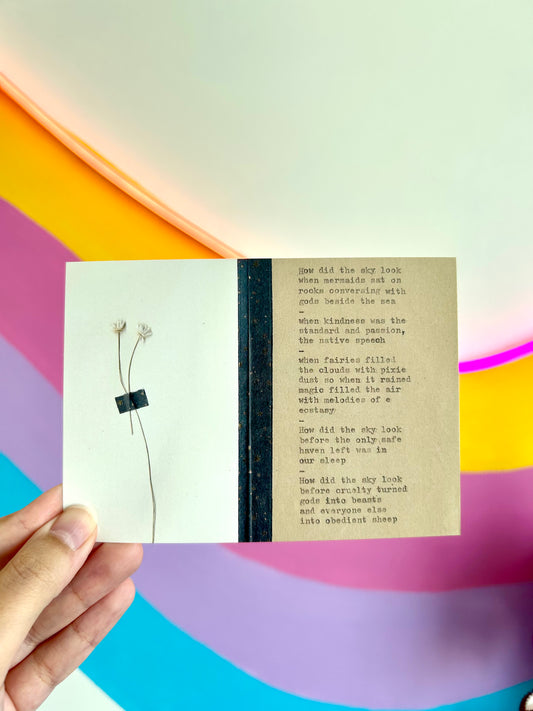 How did the sky look
when mermaids sat on
rocks conversing with
gods beside the sea
—
when kindness was the
standard and passion,
the native speech
—
when fairies filled
the clouds with pixie
dust so when it rained
magic filled the air
with melodies of e
ecstasy
—
How did the sky look
before the only safe
haven left was in
our sleep
—
How did the sky look
before cruelty turned
gods into beasts
and everyone else
into obedient sheep